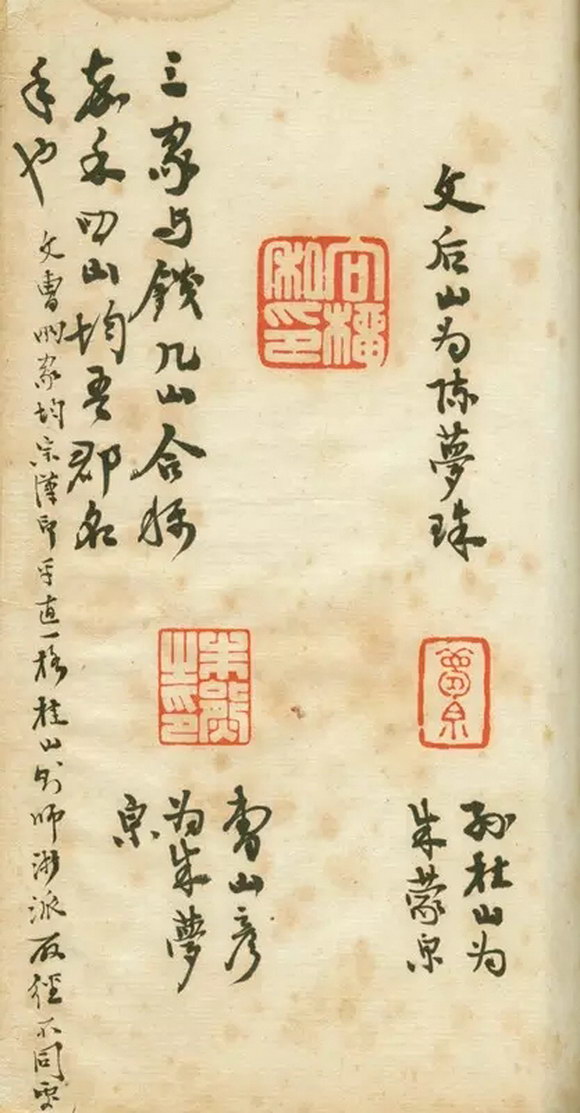 文后山为陈夢珠
孙桂山为
朱蒙泉
夢泉
曹山彦
为朱夢
泉
三家与錢几山合称
嘉禾四山均吾郡名
手也
文曹兩家均宗漢印平直一格桂山則师浙派取徑不同